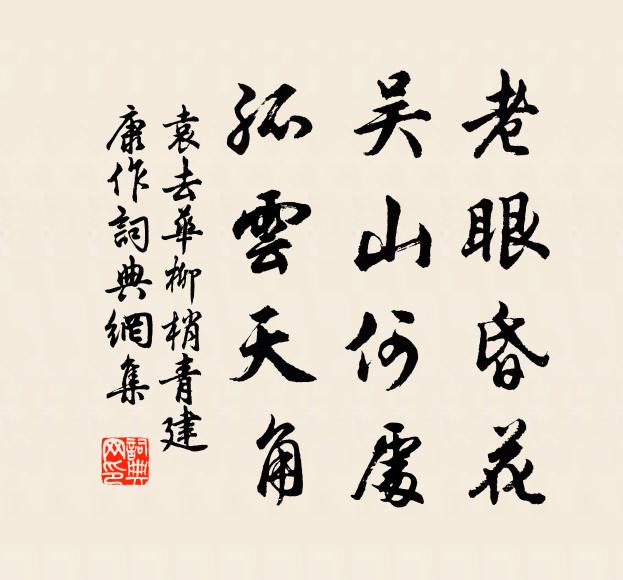 老眼昏花
吴山何處
孤雲天角
袁去華柳梢青建
康作詞典網集
詞典网印